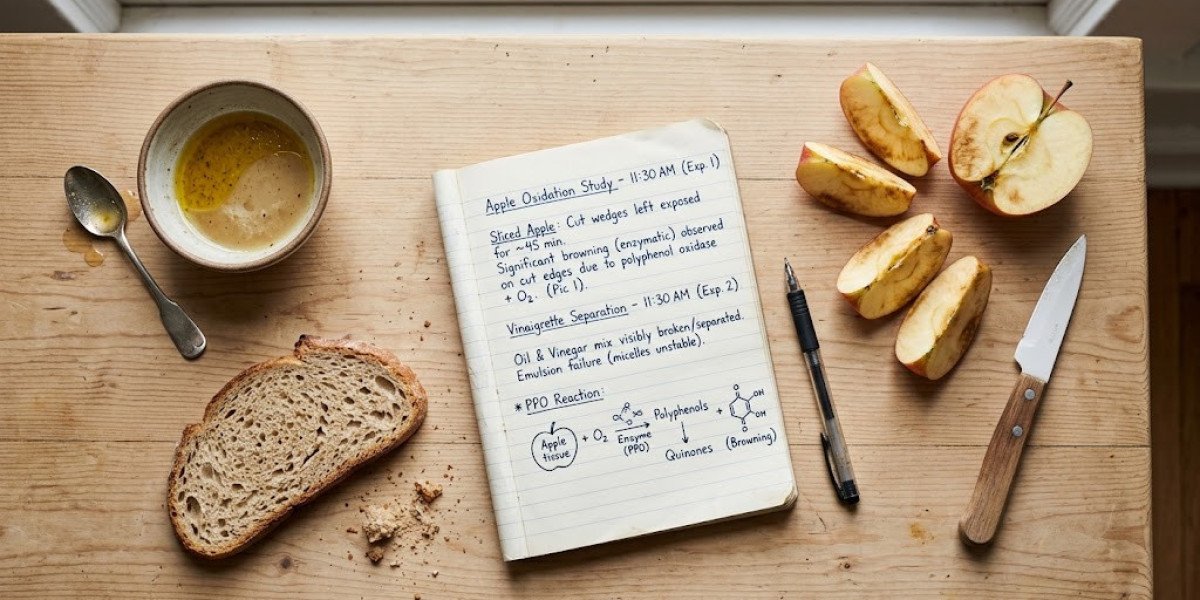 Apple Oxidation Study - 11:30 AM (Exp. 1)
Sliced Apple: Cut wedges left exposed
for ~45 min.
Significant browning (enzymatic) observed
on cut edges due to polyphenol oxidase
+ O₂. (Pic 1).
Vinaigrette Separation - 11:30 AM (Exp. 2)
Oil & Vinegar mix visibly broken/separated.
Emulsion failure (micelles unstable).
* PPO Reaction:
Apple tissue + O₂ Enzyme (PPO) Polyphenols + OH OH
Quinones (Browning)